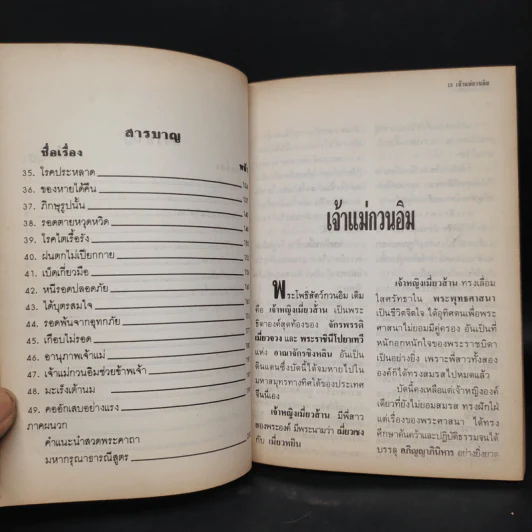 สารบาญ
ชื่อเรื่อง
35. โรคประหลาด
36. ของหายได้คืน
37. ภิกษุรูปนั้น
38. รอดตายหวุดหวิด
39. โรคไตเรื้อรัง
40. ฝนตกไม่เปียกกาย
41. เบ็ดเกี่ยวมือ
42. หนีรอดปลอดภัย
43. ได้บุตรสมใจ
44. รอดพ้นจากอุทกภัย
45. เกือบไม่รอด
46. อานุภาพเจ้าแม่
47. เจ้าแม่กวนอิมช่วยข้าพเจ้า
48. มะเร็งเต้านม
49. คออักเสบอย่างแรง
ภาคผนวก
คำแนะนำสวดพระคาถา
มหากรุณาธารณีสูตร
เจ้าแม่กวนอิม
เจ้าแม่กวนอิม
พระโพธิสัตว์กวนอิม เดิม
คือ เจ้าหญิงเมี่ยวส้าน เป็นพระ
ธิดาองค์สุดท้องของ จักรพรรดิ
เมี่ยวจวง และ พระราชินีโปยาทวี
แห่ง อาณาจักรซิงหลิน อันเป็น
ดินแดนซึ่งบัดนี้ได้จมหายไปใน
มหาสมุทรทางทิศใต้ของประเทศ
จีนนี้เอง
เจ้าหญิงเมี่ยวส้าน มีพี่สาว
สองพระองค์ มีพระนามว่า เมี่ยวชง
กับ เมี่ยวหยิน
เจ้าหญิงเมี่ยวส้าน ทรงเลื่อม
ใสศรัทธาใน พระพุทธศาสนา
เป็นชีวิตจิตใจ ได้อุทิศตนเพื่อพระ
ศาสนาไม่ยอมมีคู่ครอง อันเป็นที่
หนักอกหนักใจของพระราชบิดา
เป็นอย่างยิ่ง เพราะพี่สาวทั้งสอง
องค์ก็ได้ทรงสมรสไปหมดแล้ว
บัดนี้คงเหลือแต่เจ้าหญิงองค์
เดียวที่ยังไม่ยอมสมรส ทรงฝักใฝ่
แต่เรื่องของพระศาสนา ได้ทรง
ศึกษาค้นคว้าและปฏิบัติธรรมจนได้
บรรลุ อภิญญาภินิหาร อย่างยิ่งยวด